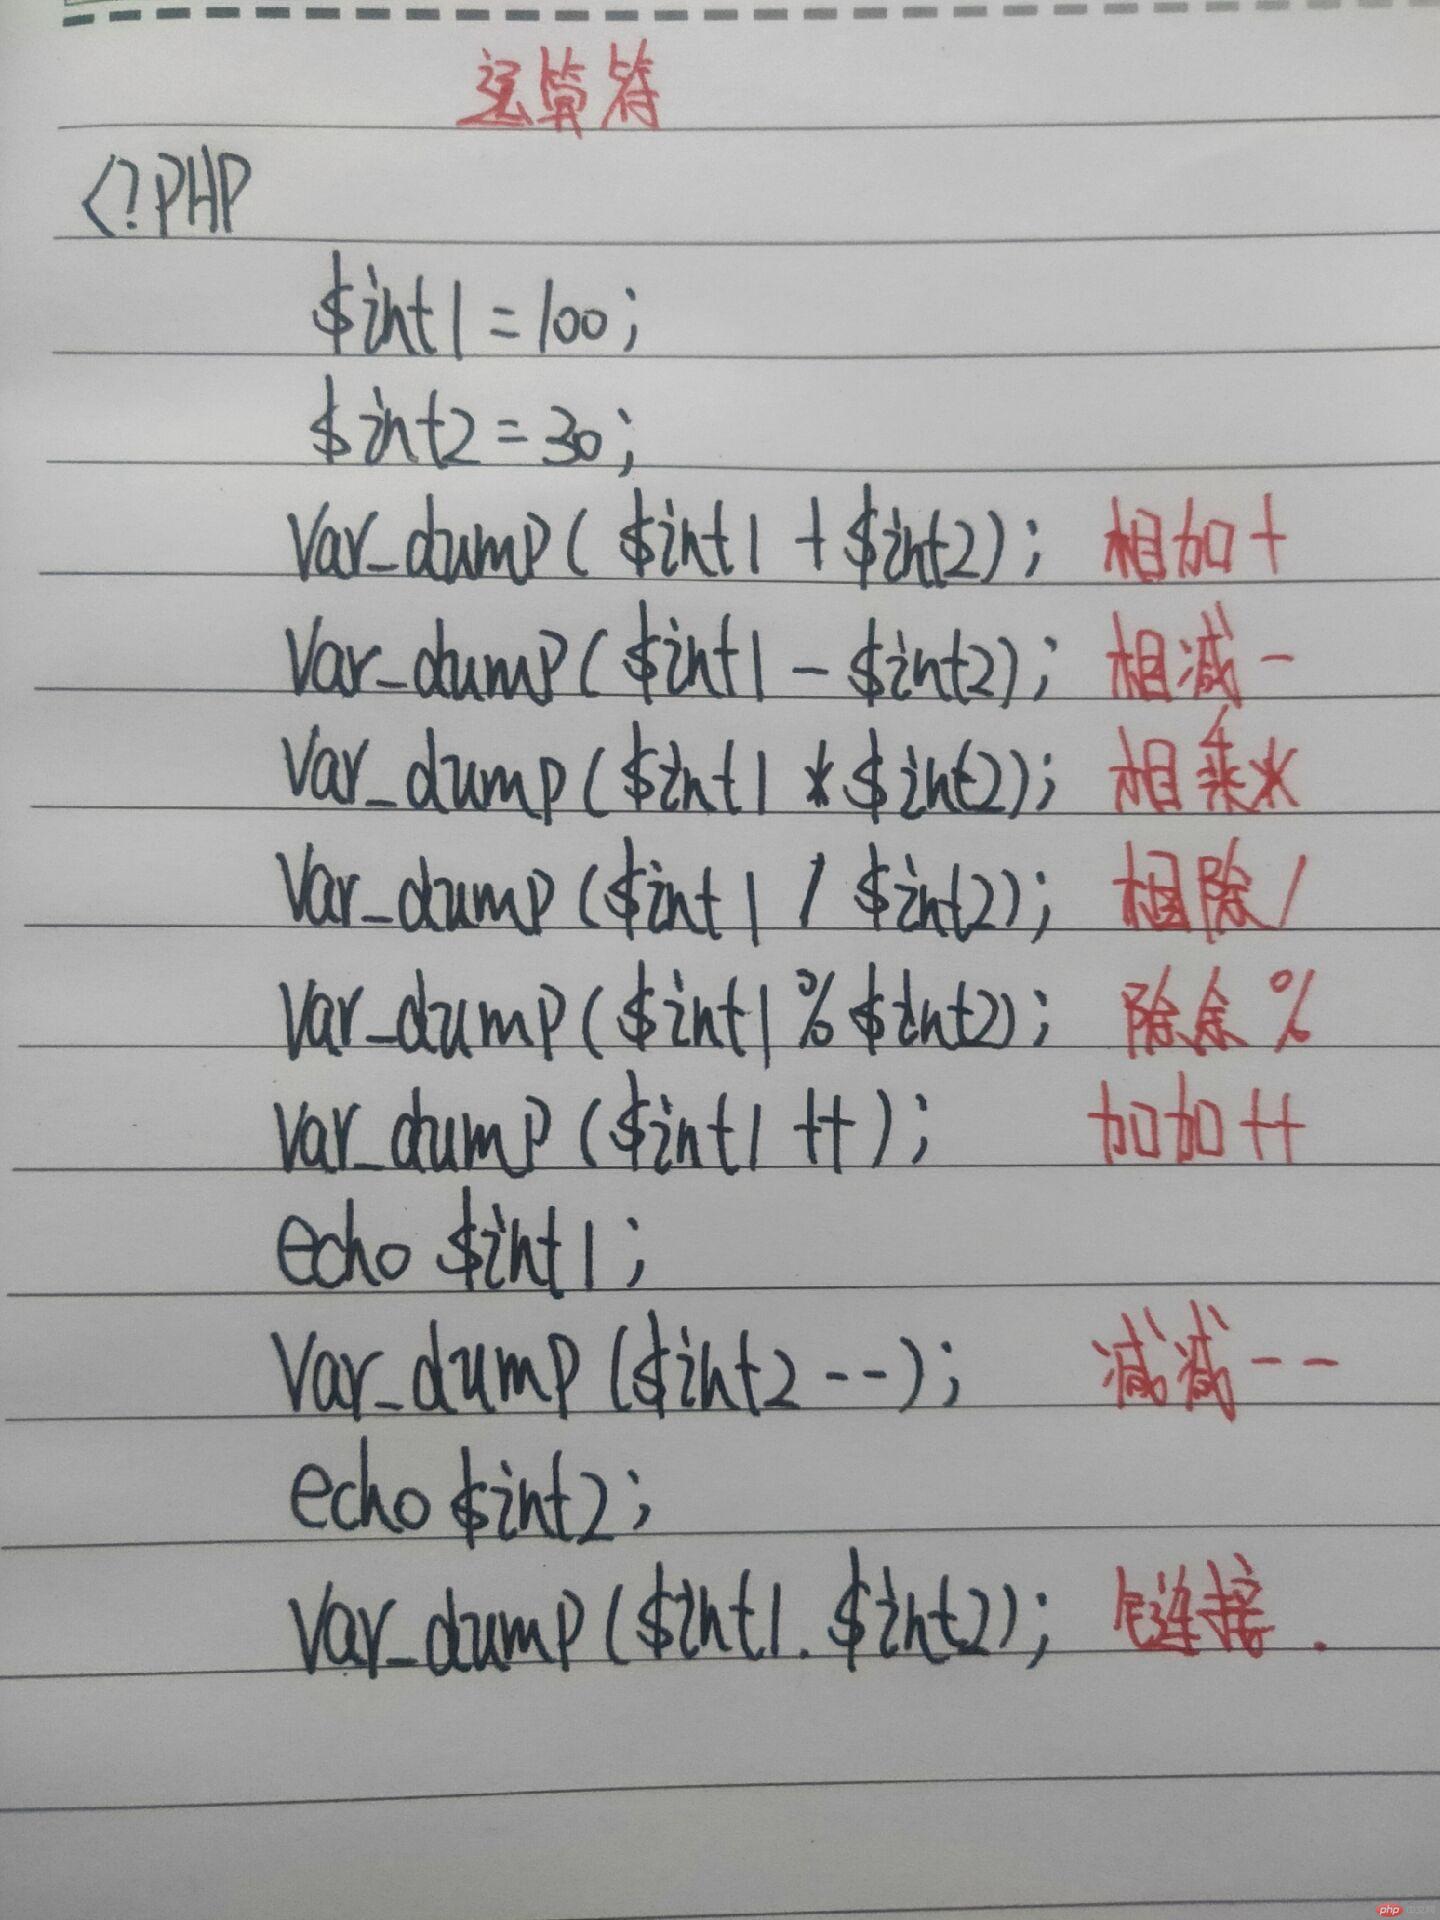 运算符
<?PHP
$int1 = 100;
$int2 = 30;
Var_dump( $int1 + $int2); 相加 +
Var_dump( $int1 - $int2); 相减 -
Var_dump( $int1 * $int2); 相乘 *
Var_dump ($int1 / $int2); 相除 /
Var_dump ( $int1 % $int2); 除余 %
Var_dump ($int1 ++); 加加 ++
echo $int1;
Var_dump ($int2 --); 减减 --
echo $int2;
Var_dump ($int1.$int2); 连接 .
php 中文网